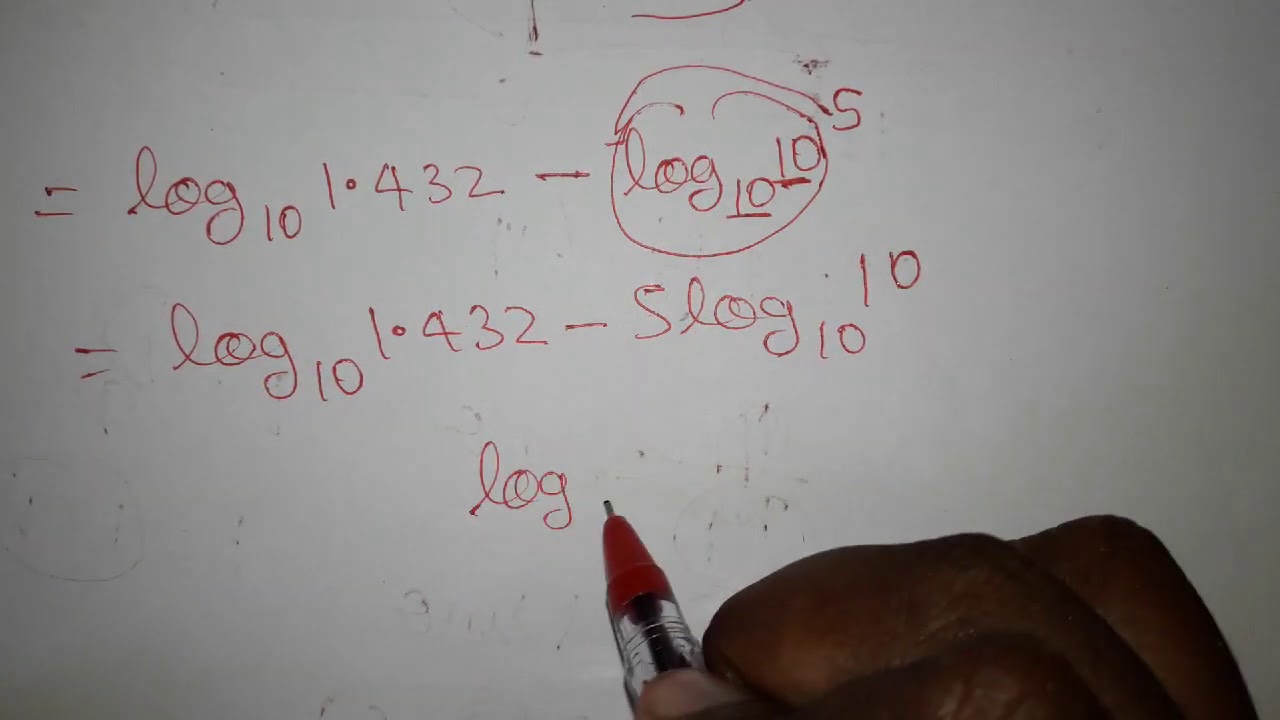 = log₁₀ 1.432 − log₁₀ 10⁵
= log₁₀ 1.432 − 5log₁₀ 10
log